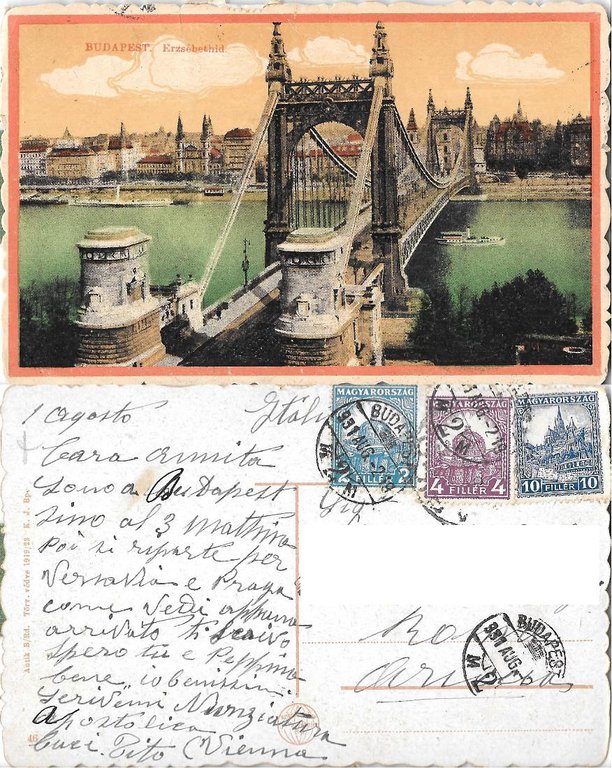 BUDAPEST. Erzsébethíd.
1 agosto
Cara Annita
sono a Budapest
sino al 3 mattina
poi si riparte per
e Praga
come vedi appena
arrivato ti scrivo
spero tu e Peppino
bene io benissimo
scrivimi Nunziatura
Apostolica
Baci. Tito (Vienna
MAGYARORSZÁG
2 FILLÉR 2
MAGYARORSZÁG
4 FILLÉR 4
MAGYARORSZÁG
10 FILLÉR 10
BUDAPEST
931 AUG
M 2 M
BUDAPEST
931 AUG
Antik B/Rd. Törv. védve 1919/23 K. J. Bp.
46